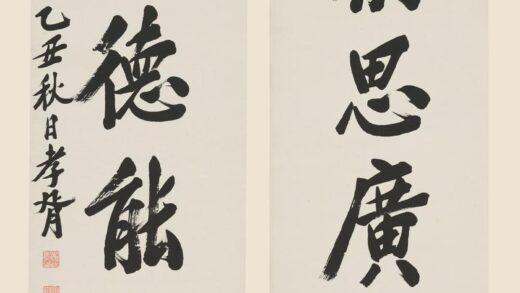 思廣
德能
乙丑秋日孝胥